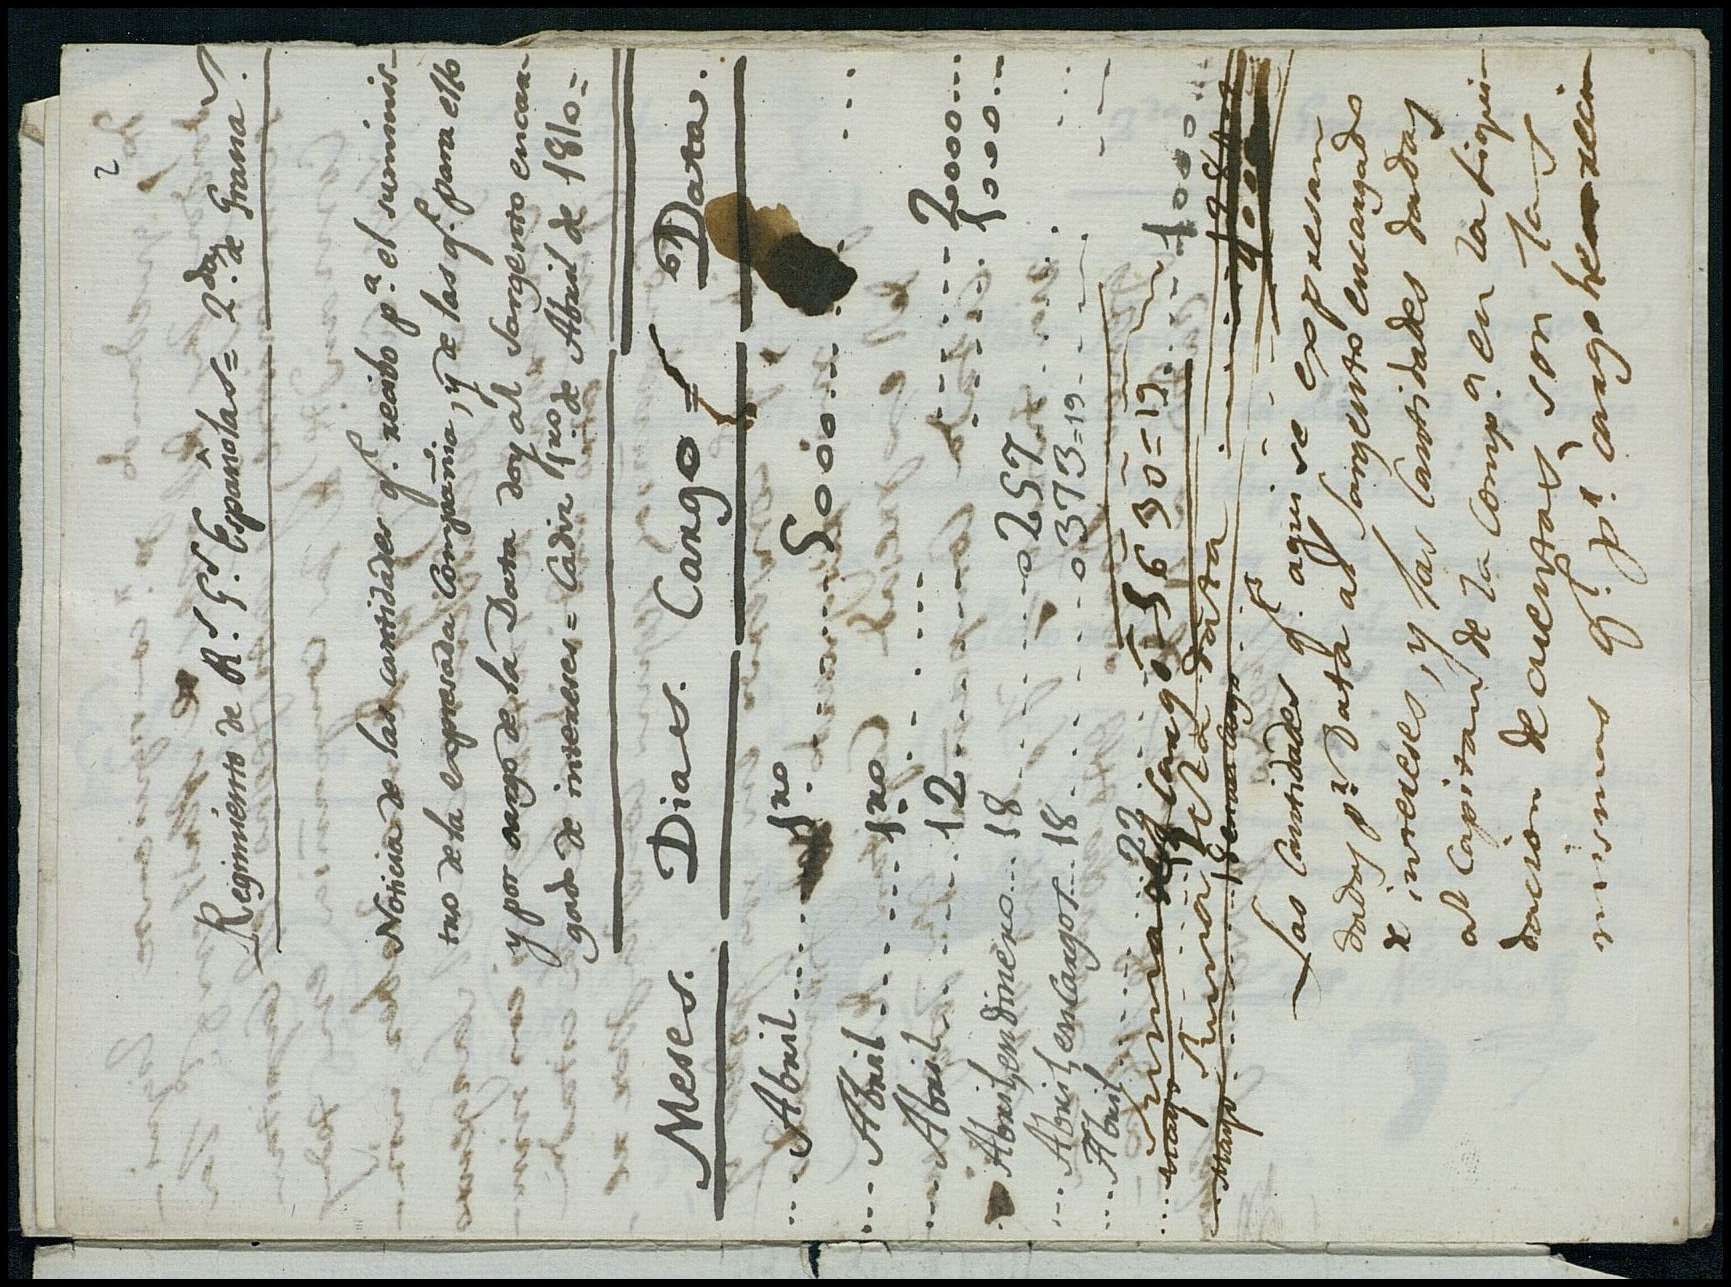 2
Regimiento de R.s G.s Españolas = 2.da de Grana.s
Noticia de las cantidades q.e recibo p.a el suminis-
tro de la expresada Compañia, y de las q.e para esto
y por cargo de la Data doy al Sargento encar-
gado de intereses = Cadiz 1.ro de Abril de 1810 =
Meses. Dias. Cargo = Data.
Abril 1.ro 5000
Abril 1.ro 2000
Abril 12 1000
Abril, en dinero 18 0257
Abril en Cargos 18 0373=19
Abril 22 1000
Suma el Cargo 5630=19
mayo
Suma la data
mayo
Las Cantidades q.e aqui se expresan
dadas p.r Data al Sargento encargado
e intereses, y las Cantidades dadas
al Capitan de la Comp.a en la liqui-
dacion de cuentas, son las
mismas q.e p.r cargo